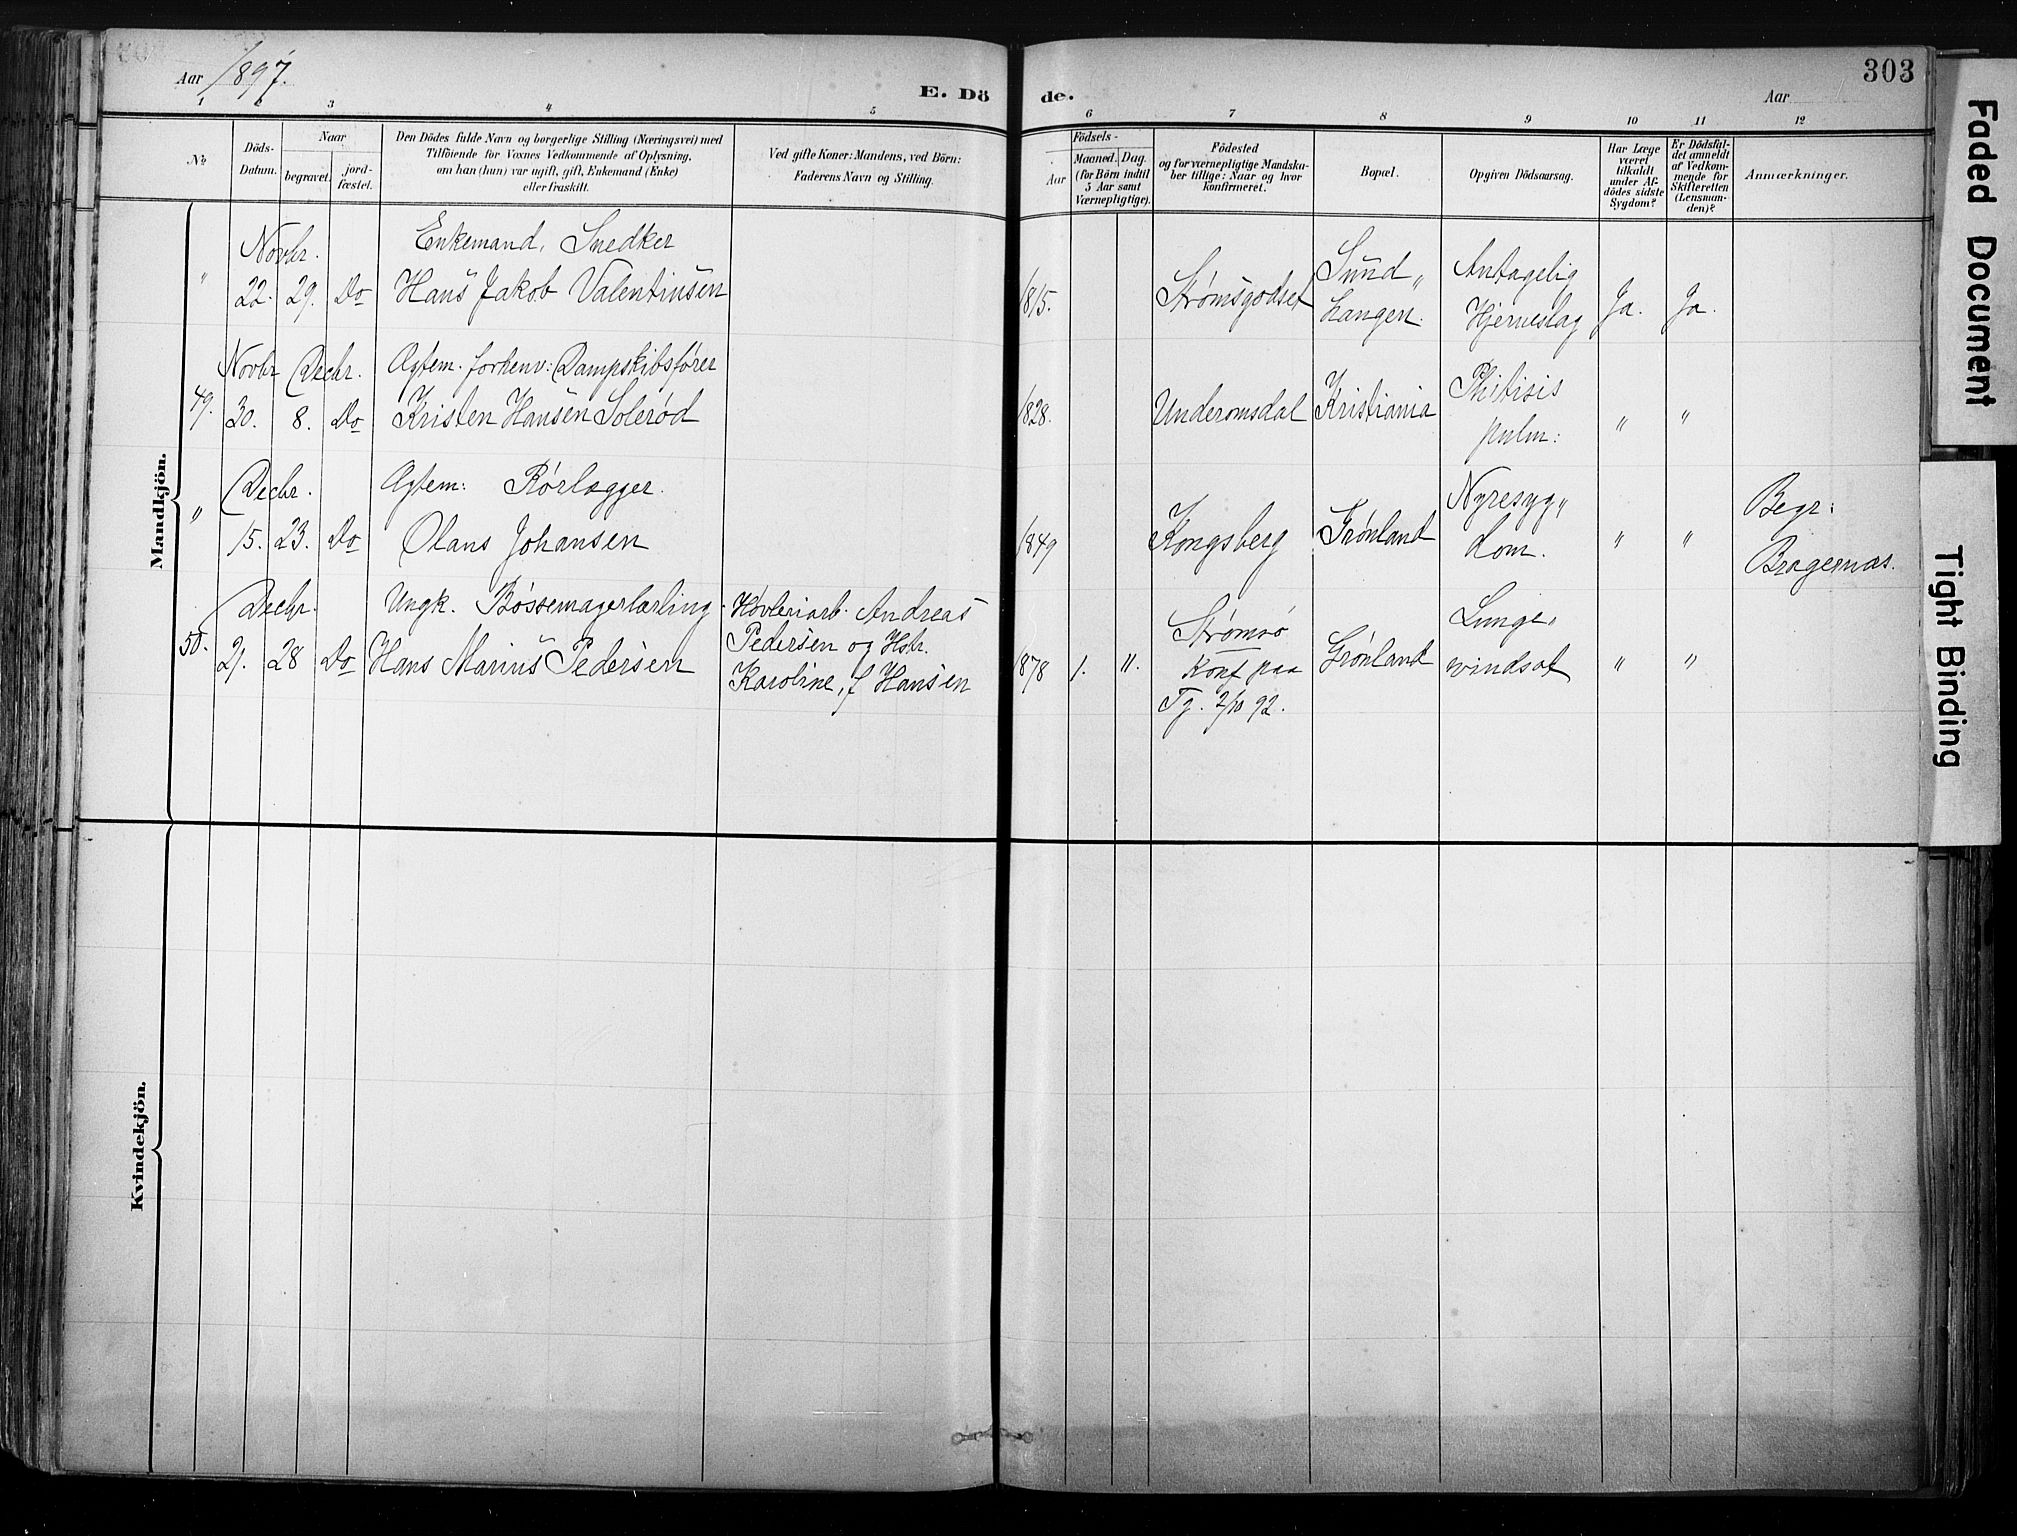 303
Aar 1897.
E. Dö de.
Aar
1 2 3 4 5 6 7 8 9 10 11 12
No
Döds-
Datum.
Naar
begravet.
jord-
fæstet.
Den Dödes fulde Navn og borgerlige Stilling (Næringsvei) med
Tilföiende for Voxnes Vedkommende af Oplysning,
om han (hun) var ugift, gift, Enkemand (Enke)
eller fraskilt.
Ved gifte Koner: Mandens, ved Börn:
Faderens Navn og Stilling.
Födsels-
Aar
Maaned. Dag.
(for Börn indtil
5 Aar samt
Værnepligtige).
Födested
og for værnepligtige Mandska-
ber tillige: Naar og hvor
konfirmeret.
Bopæl.
Opgiven Dödsaarsag.
Har Læge
været
tilkaldt
under Af-
dödes sidste
Sygdom?
Er Dödsfal-
det anmeldt
af Vedkom-
mende for
Skifteretten
(Lensman-
den)?
Anmærkninger.
Mandkjön.
Novbr. Enkemand, Snedker Sund„ Antagelig
" 22. 29. Do Hans Jakob Valentinsen 1815. Strømsgodset Langen. Hjerneslag Ja. Ja.
Novbr Decbr. Agtem. forhenv: Dampskibsfører Phitisis
49. 30. 8. Do Kristen Hansen Solerød 1828. Underomsdal Kristiania pulm: " "
Decbr. Agtem: Rørlægger. Nyresyg„ Begr:
" 15. 23. Do Olans Johansen 1849 Kongsberg Grønland dom. " " Bragernæs.
Decbr. Ungk. Bøssemagerlærling. Høvleriarb. Andreas Strømsø Lunge„
50. 21. 28 Do Hans Marius Pedersen Pedersen og Hstr. 1878 1. 11. Konf paa Grønland vindsot " "
Karoline, f Hansen Tg. 2/10 92.
Kvindekjön.
Faded Document
Tight Binding